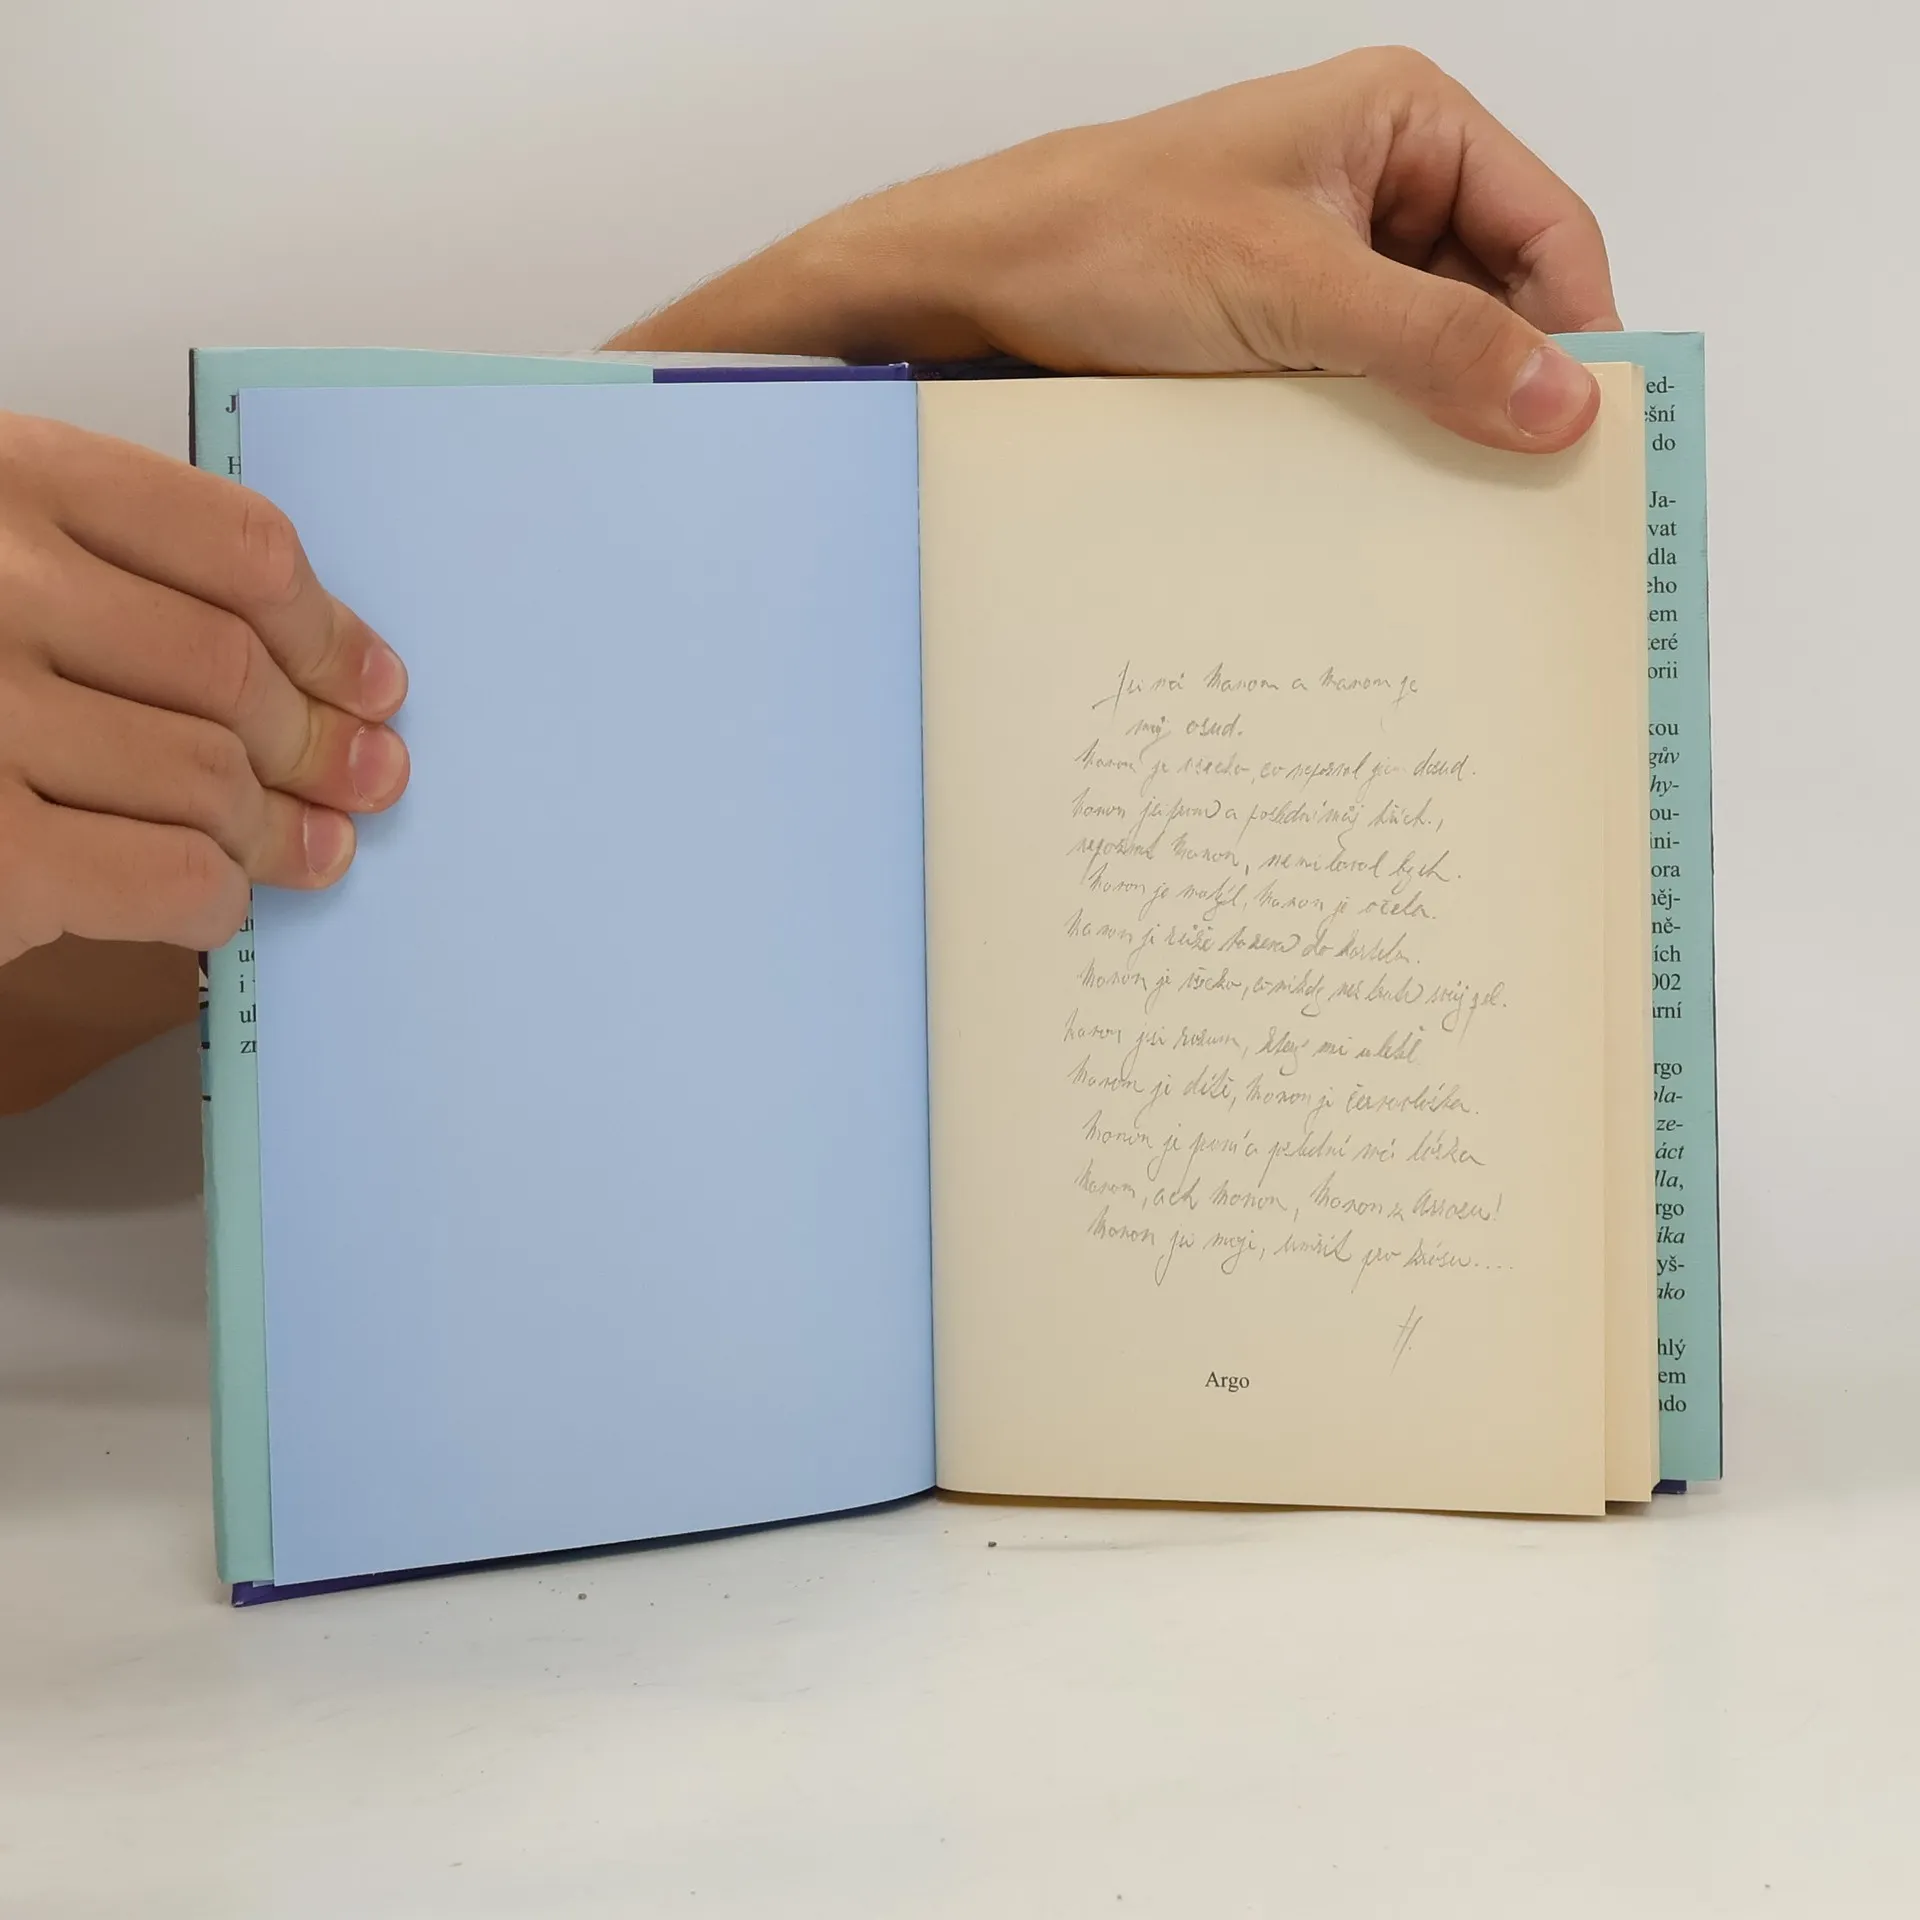 J
H
u
i
ul
zn
Jsi má Manon a Manon je
můj osud.
Manon je všecko, co nepoznal jsem dosud.
Manon je první a poslední můj hřích.,
nepoznat Manon, nemiloval bych.
Manon je motýl, Manon je včela.
Manon je růže hozená do kostela.
Manon je všecko, co nikdy neztratí svůj pel.
Manon je rozum, který mi uletěl
Manon je dítě, Manon je černovláska.
Manon je první a poslední má láska
Manon, ach Manon, Manon z Arrasu!
Manon je moje, umřít pro krásu....
H.
Argo
ed-
ešní
do
Ja-
vat
dla
eho
sem
teré
orii
kou
gův
hy-
ou-
ini-
ora
něj-
ně-
ích
002
ární
rgo
pla-
ze-
áct
lla,
rgo
íka
yš-
ako
hlý
em
ndo